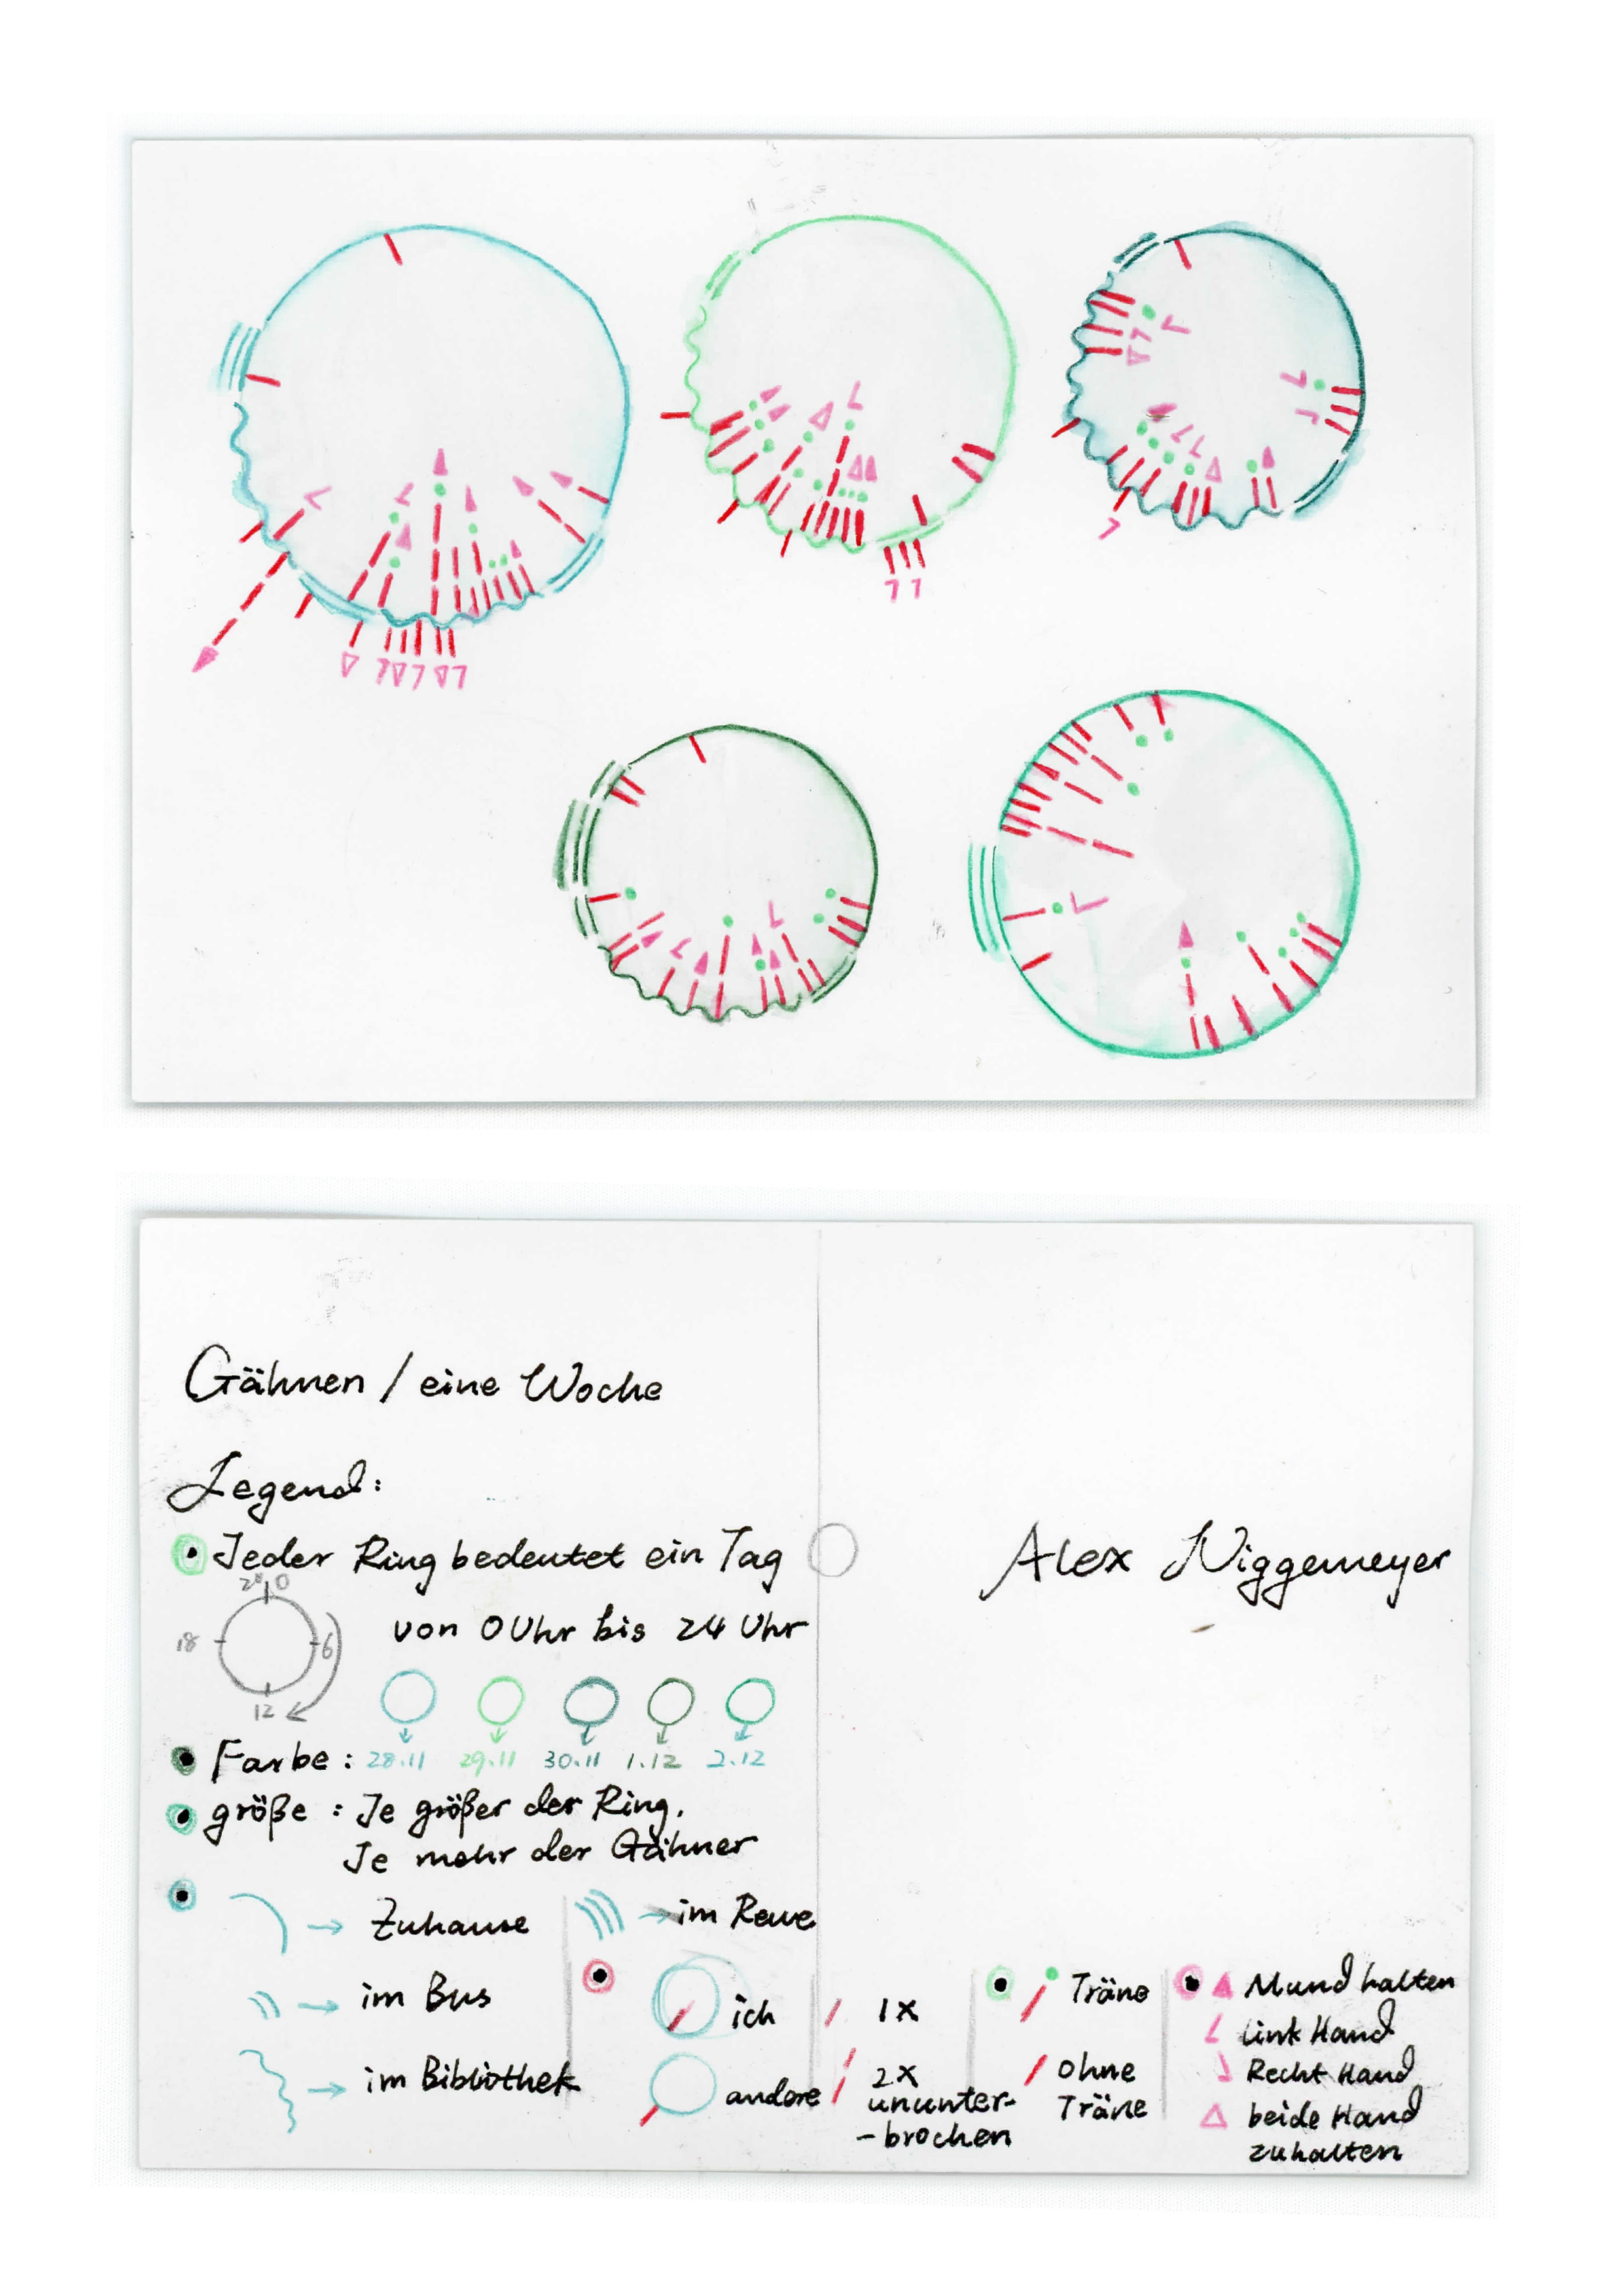 Gähnen / eine Woche
Legend:
Jeder Ring bedeutet ein Tag
von 0 Uhr bis 24 Uhr
24 0
18
6
12
Farbe : 28.11 29.11 30.11 1.12 2.12
größe : Je größer der Ring,
Je mehr der Gähner
Zuhause
im Rewe
im Bus
im Bibliothek
ich
andere
1x
2x
ununter-
-brochen
Träne
ohne
Träne
Mund halten
Link Hand
Recht Hand
beide Hand
zuhalten
Alex Niggemeyer